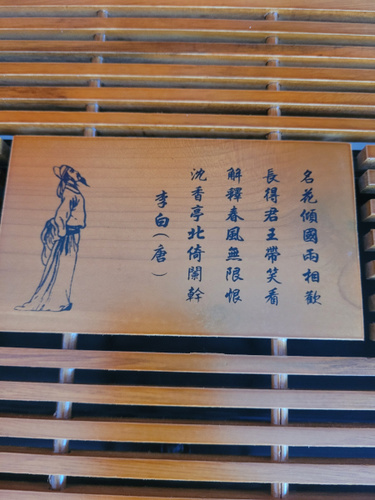 名花傾國兩相歡
長得君王帶笑看
解釋春風無限恨
沈香亭北倚闌幹
李白（唐）